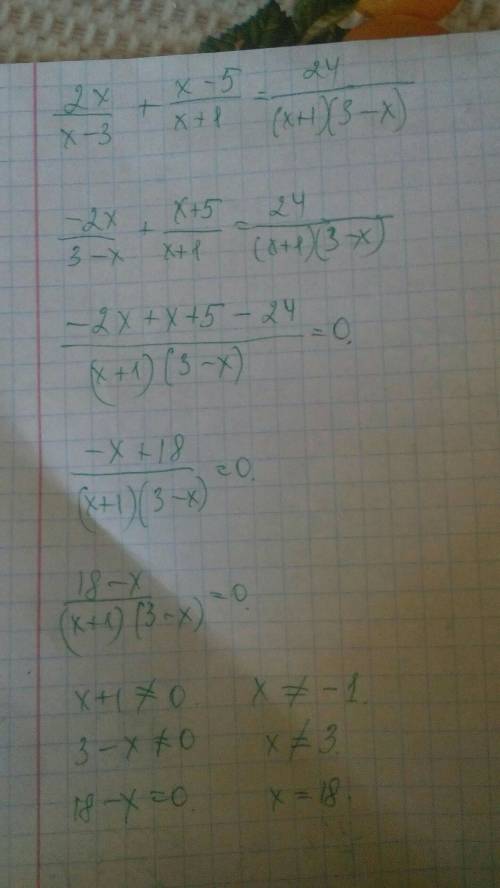 2x/(x-3) + (x-5)/(x+1) = 24/((x+1)(3-x))
-2x/(3-x) + (x+5)/(x+1) = 24/((x+1)(3-x))
(-2x+x+5-24)/((x+1)(3-x)) = 0.
(-x+18)/((x+1)(3-x)) = 0.
(18-x)/((x+1)(3-x)) = 0.
x+1≠0. x≠-1.
3-x≠0 x≠3.
18-x=0. x=18.